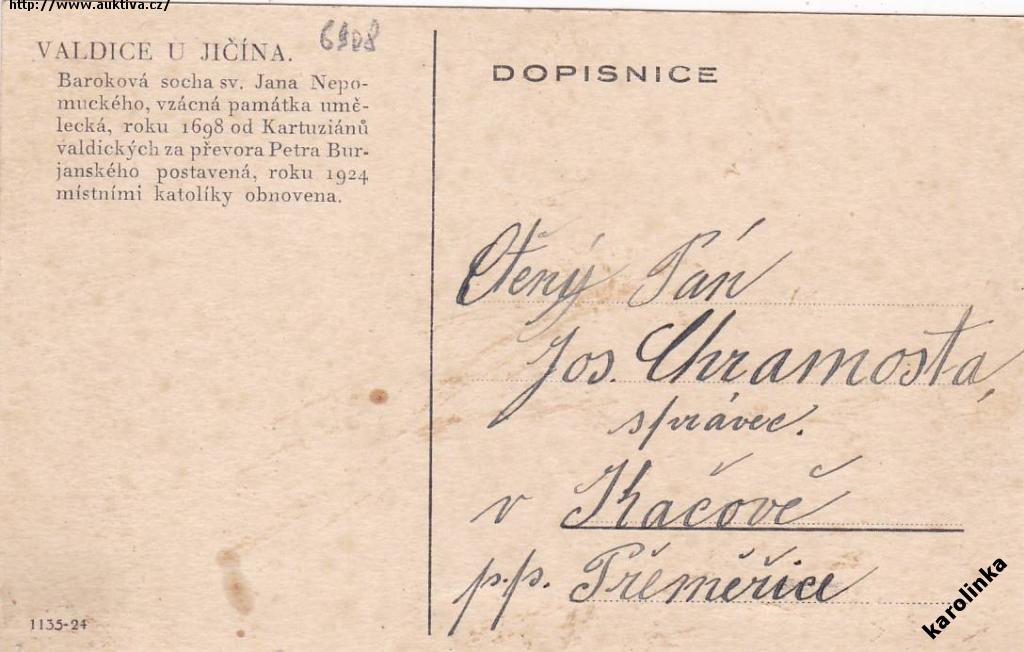 http://www.auktiva.cz/
6908
VALDICE U JIČÍNA.
Baroková socha sv. Jana Nepo-
muckého, vzácná památka umě-
lecká, roku 1698 od Kartuziánů
valdických za převora Petra Bur-
janského postavená, roku 1924
místními katolíky obnovena.
1135-24
DOPISNICE
Ctěný Pán
Jos. Chramosta,
správec.
v Kačově
p.p. Přeměřice
karolinka